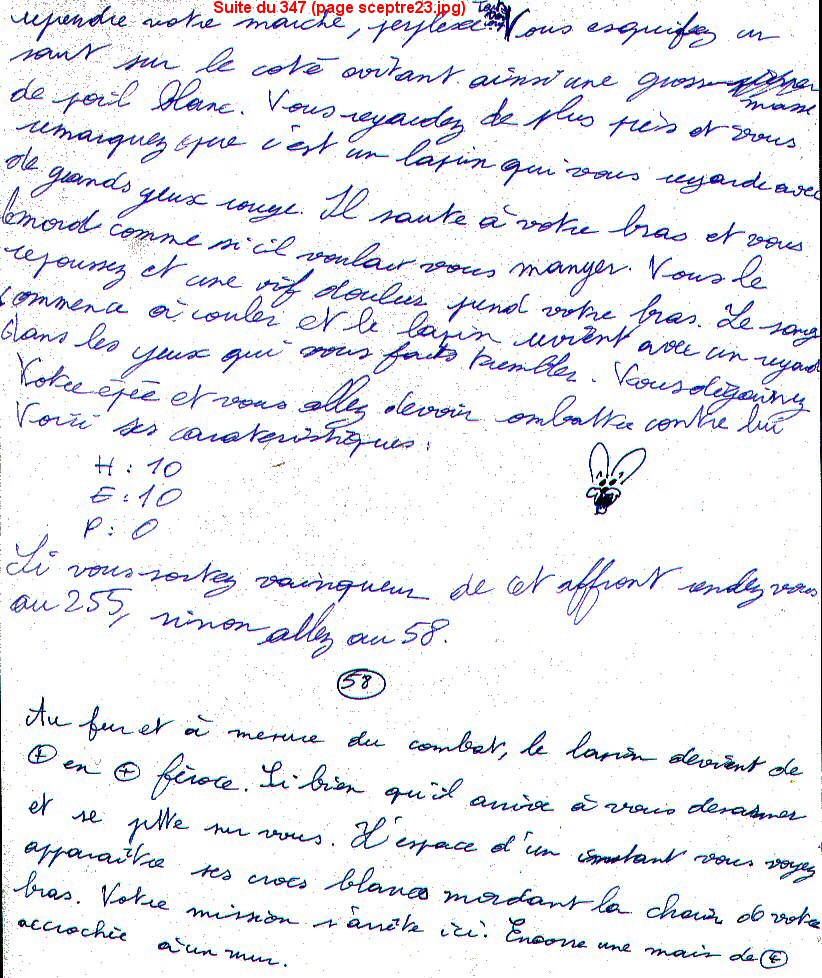 Suite du 347 (page sceptre23.jpg)
reprendre votre marche, perplexe. Vous esquifez un
saut sur le coté évitant ainsi une grosse masse
de poil blanc. Vous regardez de plus près et vous
remarquez que c'est un lapin qui vous regarde avec
de grands yeux rouge. Il saute à votre bras et vous
mord comme si il voulait vous manger. Vous le
repoussez et une vif douleur prend votre bras. Le sang
commence à couler et le lapin revient avec un regard
dans les yeux qui vous faits trembler. Vous dégainez
Votre épée et vous allez devoir combattre contre lui
Voici ses carateristiques :
H : 10
E : 10
P : 0
Si vous sortez vainqueur de cet affront rendez vous
au 255, sinon allez au 58.
58
Au fur et à mesure du combat, le lapin devient de
+ en + féroce. Si bien qu'il arrive à vous desarmer
et se jette sur vous. L'espace d'un instant vous voyez
apparaître ses crocs blancs mordant la chair de votre
bras. Votre mission s'arrête ici. Encore une main de +
accrochée à un mur.